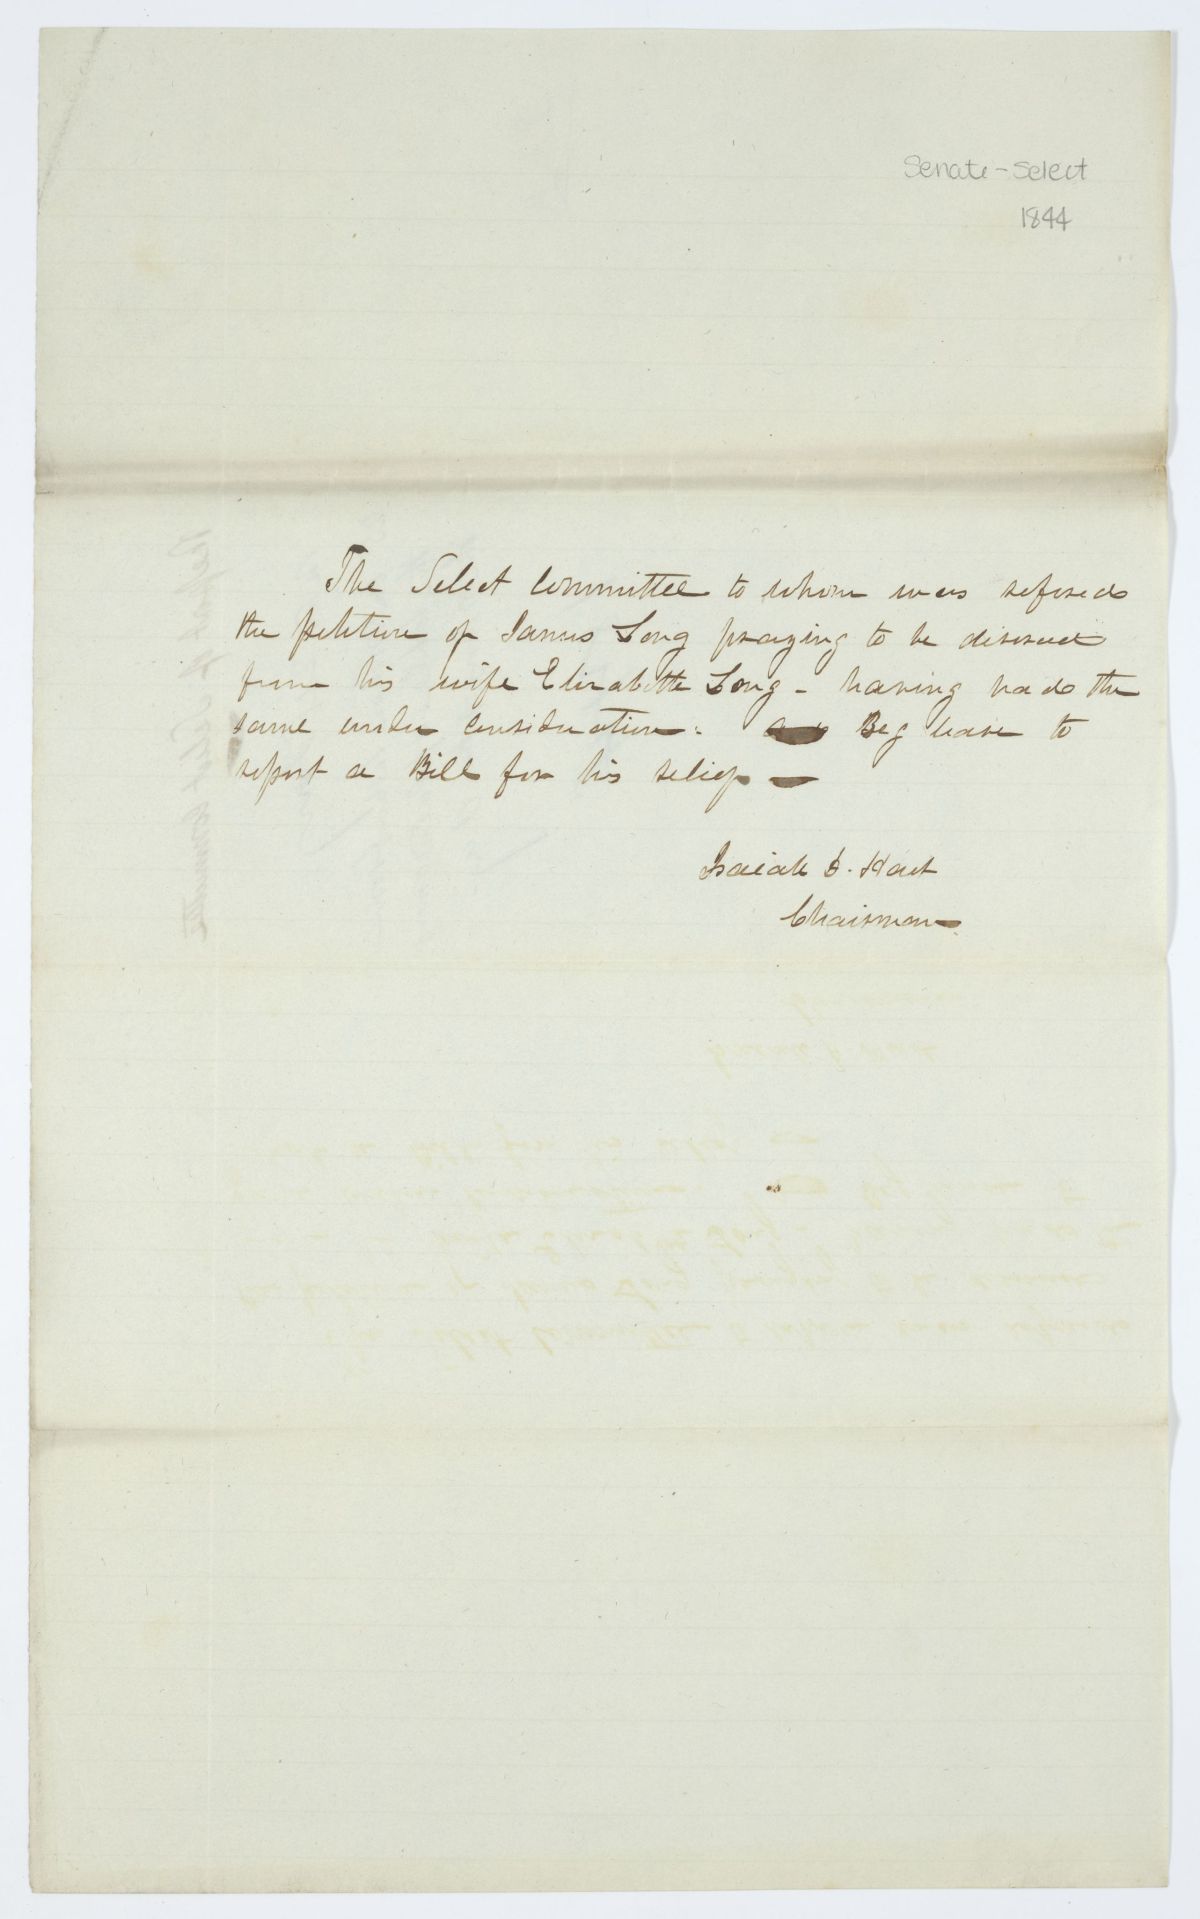 Senate-Select
1844
The Select Committee to whom was refered
the petition of James Long praying to be divorced
from his wife Elizabeth Long - having had the
same under consideration. Beg leave to
report a Bill for his relief
Isaiah D. Hart
Chairman